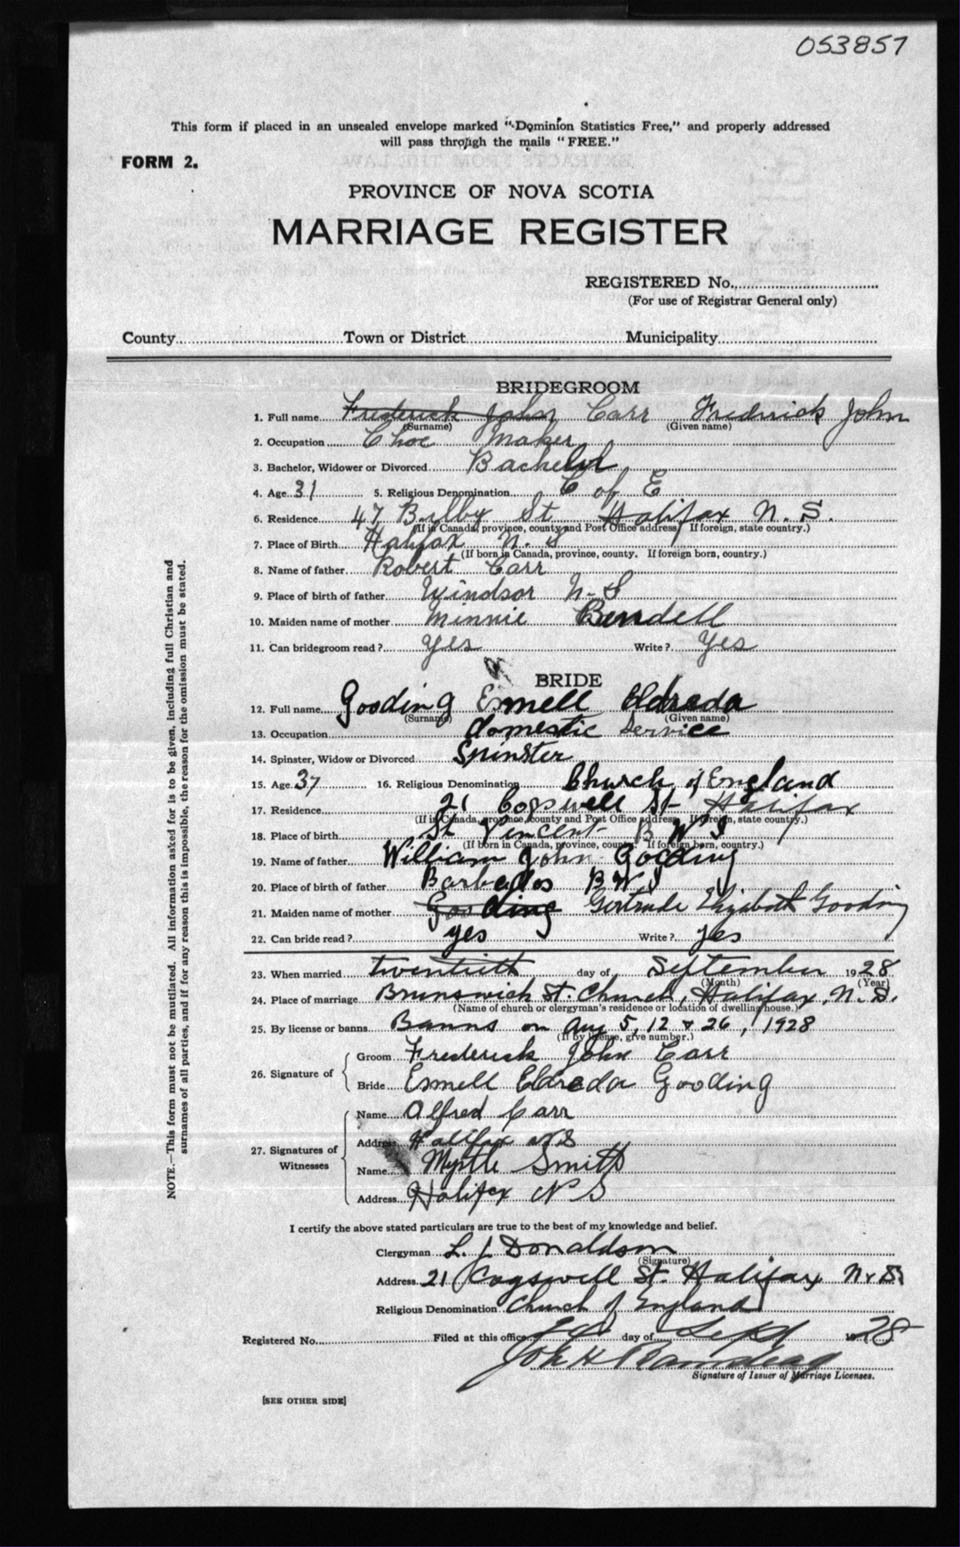 053857
This form if placed in an unsealed envelope marked "Dominion Statistics Free," and properly addressed
will pass through the mails "FREE."
FORM 2.
PROVINCE OF NOVA SCOTIA
MARRIAGE REGISTER
REGISTERED No.
(For use of Registrar General only)
County Town or District Municipality
BRIDEGROOM
1. Full name Frederick John Carr Fredrick John
(Surname) (Given name)
2. Occupation Choc Maker
3. Bachelor, Widower or Divorced Bachelor
4. Age 31 5. Religious Denomination C of E
6. Residence 47 Bilby St Halifax N. S.
(If in Canada, province, county and Post Office address. If foreign, state country.)
7. Place of Birth Halifax N. S
(If born in Canada, province, county. If foreign born, country.)
8. Name of father Robert Carr
9. Place of birth of father Windsor N. S
10. Maiden name of mother Minnie
11. Can bridegroom read? Yes Write? Yes
BRIDE
12. Full name Gooding Esmell Eldreda
(Surname) (Given name)
13. Occupation Domestic Service
14. Spinster, Widow or Divorced Spinster
15. Age 37 16. Religious Denomination Church of England
17. Residence 21 Cogswell St Halifax
(If in Canada, province, county and Post Office address. If foreign, state country.)
18. Place of birth St Vincent B W I
(If born in Canada, province, county. If foreign born, country.)
19. Name of father William John Gooding
20. Place of birth of father Barbados B W I
21. Maiden name of mother Gooding Gertrude Elizabeth Gooding
22. Can bride read? yes Write? yes
23. When married twentieth day of September 1928
(Month) (Year)
24. Place of marriage Brunswick St. Church, Halifax, N. S.
(Name of church or clergyman's residence or location of dwelling house.)
25. By license or banns Banns on Aug 5, 12 & 26, 1928
(If by license, give number.)
26. Signature of
Groom Frederick John Carr
Bride Esmell Eldreda Gooding
27. Signatures of Witnesses
Name Alfred Carr
Address Halifax N S
Name Myrtle Smith
Address Halifax N S
I certify the above stated particulars are true to the best of my knowledge and belief.
Clergyman L. J Donaldson
(Signature)
Address 21 Cogswell St. Halifax N. S.
Religious Denomination Church of England
Registered No. Filed at this office day of Sept 1928
Signature of Issuer of Marriage Licenses.
[SEE OTHER SIDE]
NOTE.—This form must not be mutilated. All information asked for is to be given, including full Christian and
surnames of all parties, and if for any reason this is impossible, the reason for the omission must be stated.